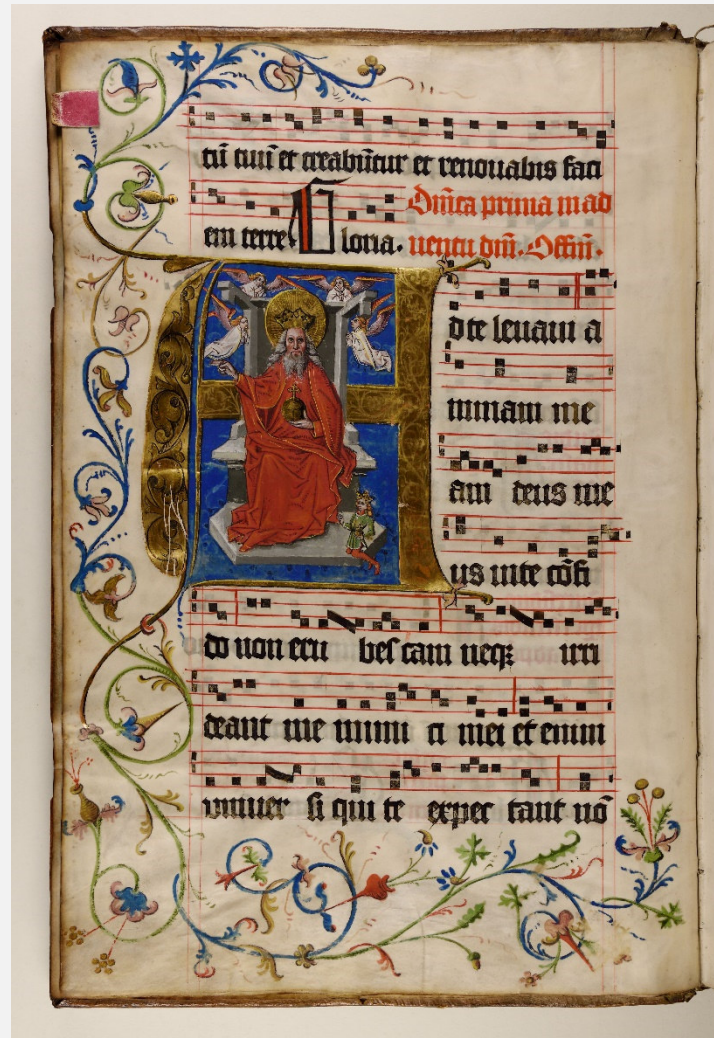 tũ tuũ et creabũtur et renouabis faci
em terre. Gloria. Dñica prima in ad
uentu dñi. Offiũ.
Ad te leuaui a
nimam me
am deus me
us in te cõfi
do non eru bes cam neqȝ irri
deant me inimi ci mei et enim
vniuer si qui te expec tant nõ